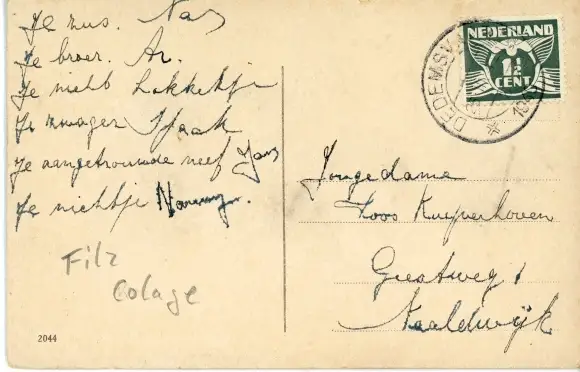 Je zus. Nas
Je broer. Ar.
Je nicht Lokketje
Je zwager Sjaak
Je aangetrouwde neef Jans
Je nichtje
Filz
Colage
2044
NEDERLAND
1½
CENT
DEDEMSV
Jongedame
Koos Kuyvenhoven
Geestweg 1
Naaldwijk